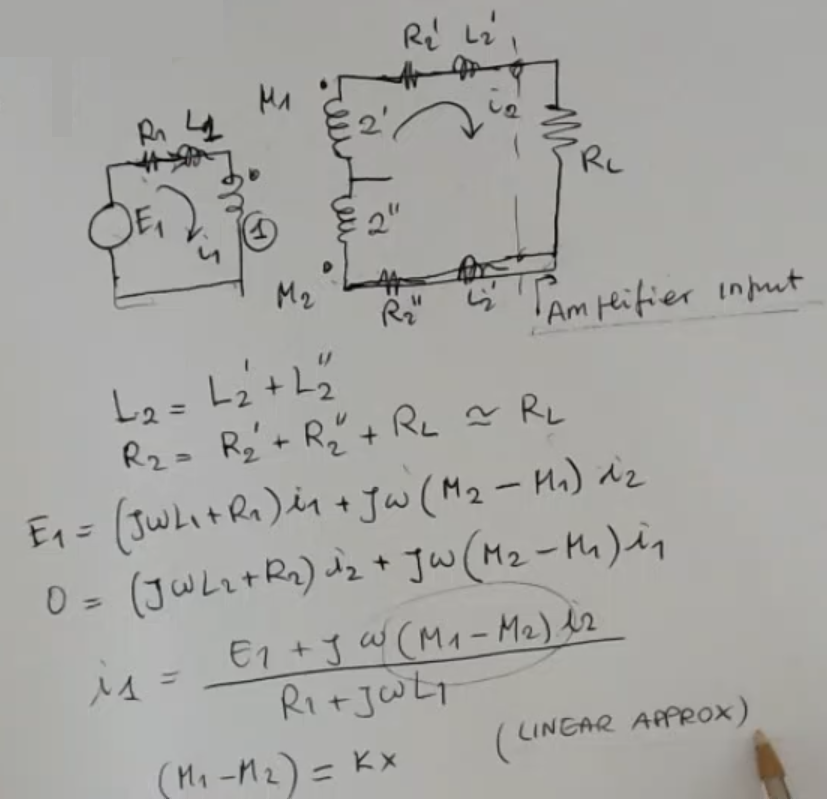 R2' L2'
M1
2'
i2
R1 L1
RL
E1
i1
1
2"
M2
R2" L2'
Amplifier input
L2 = L2' + L2"
R2 = R2' + R2" + RL ≃ RL
E1 = (JωL1+R1)i1 + Jω(M2 – M1) i2
0 = (JωL2+R2) i2 + Jω(M2 – M1) i1
i1 = E1 + J ω(M1 – M2) i2
R1 + JωL1
(M1 – M2) = Kx (LINEAR APPROX)